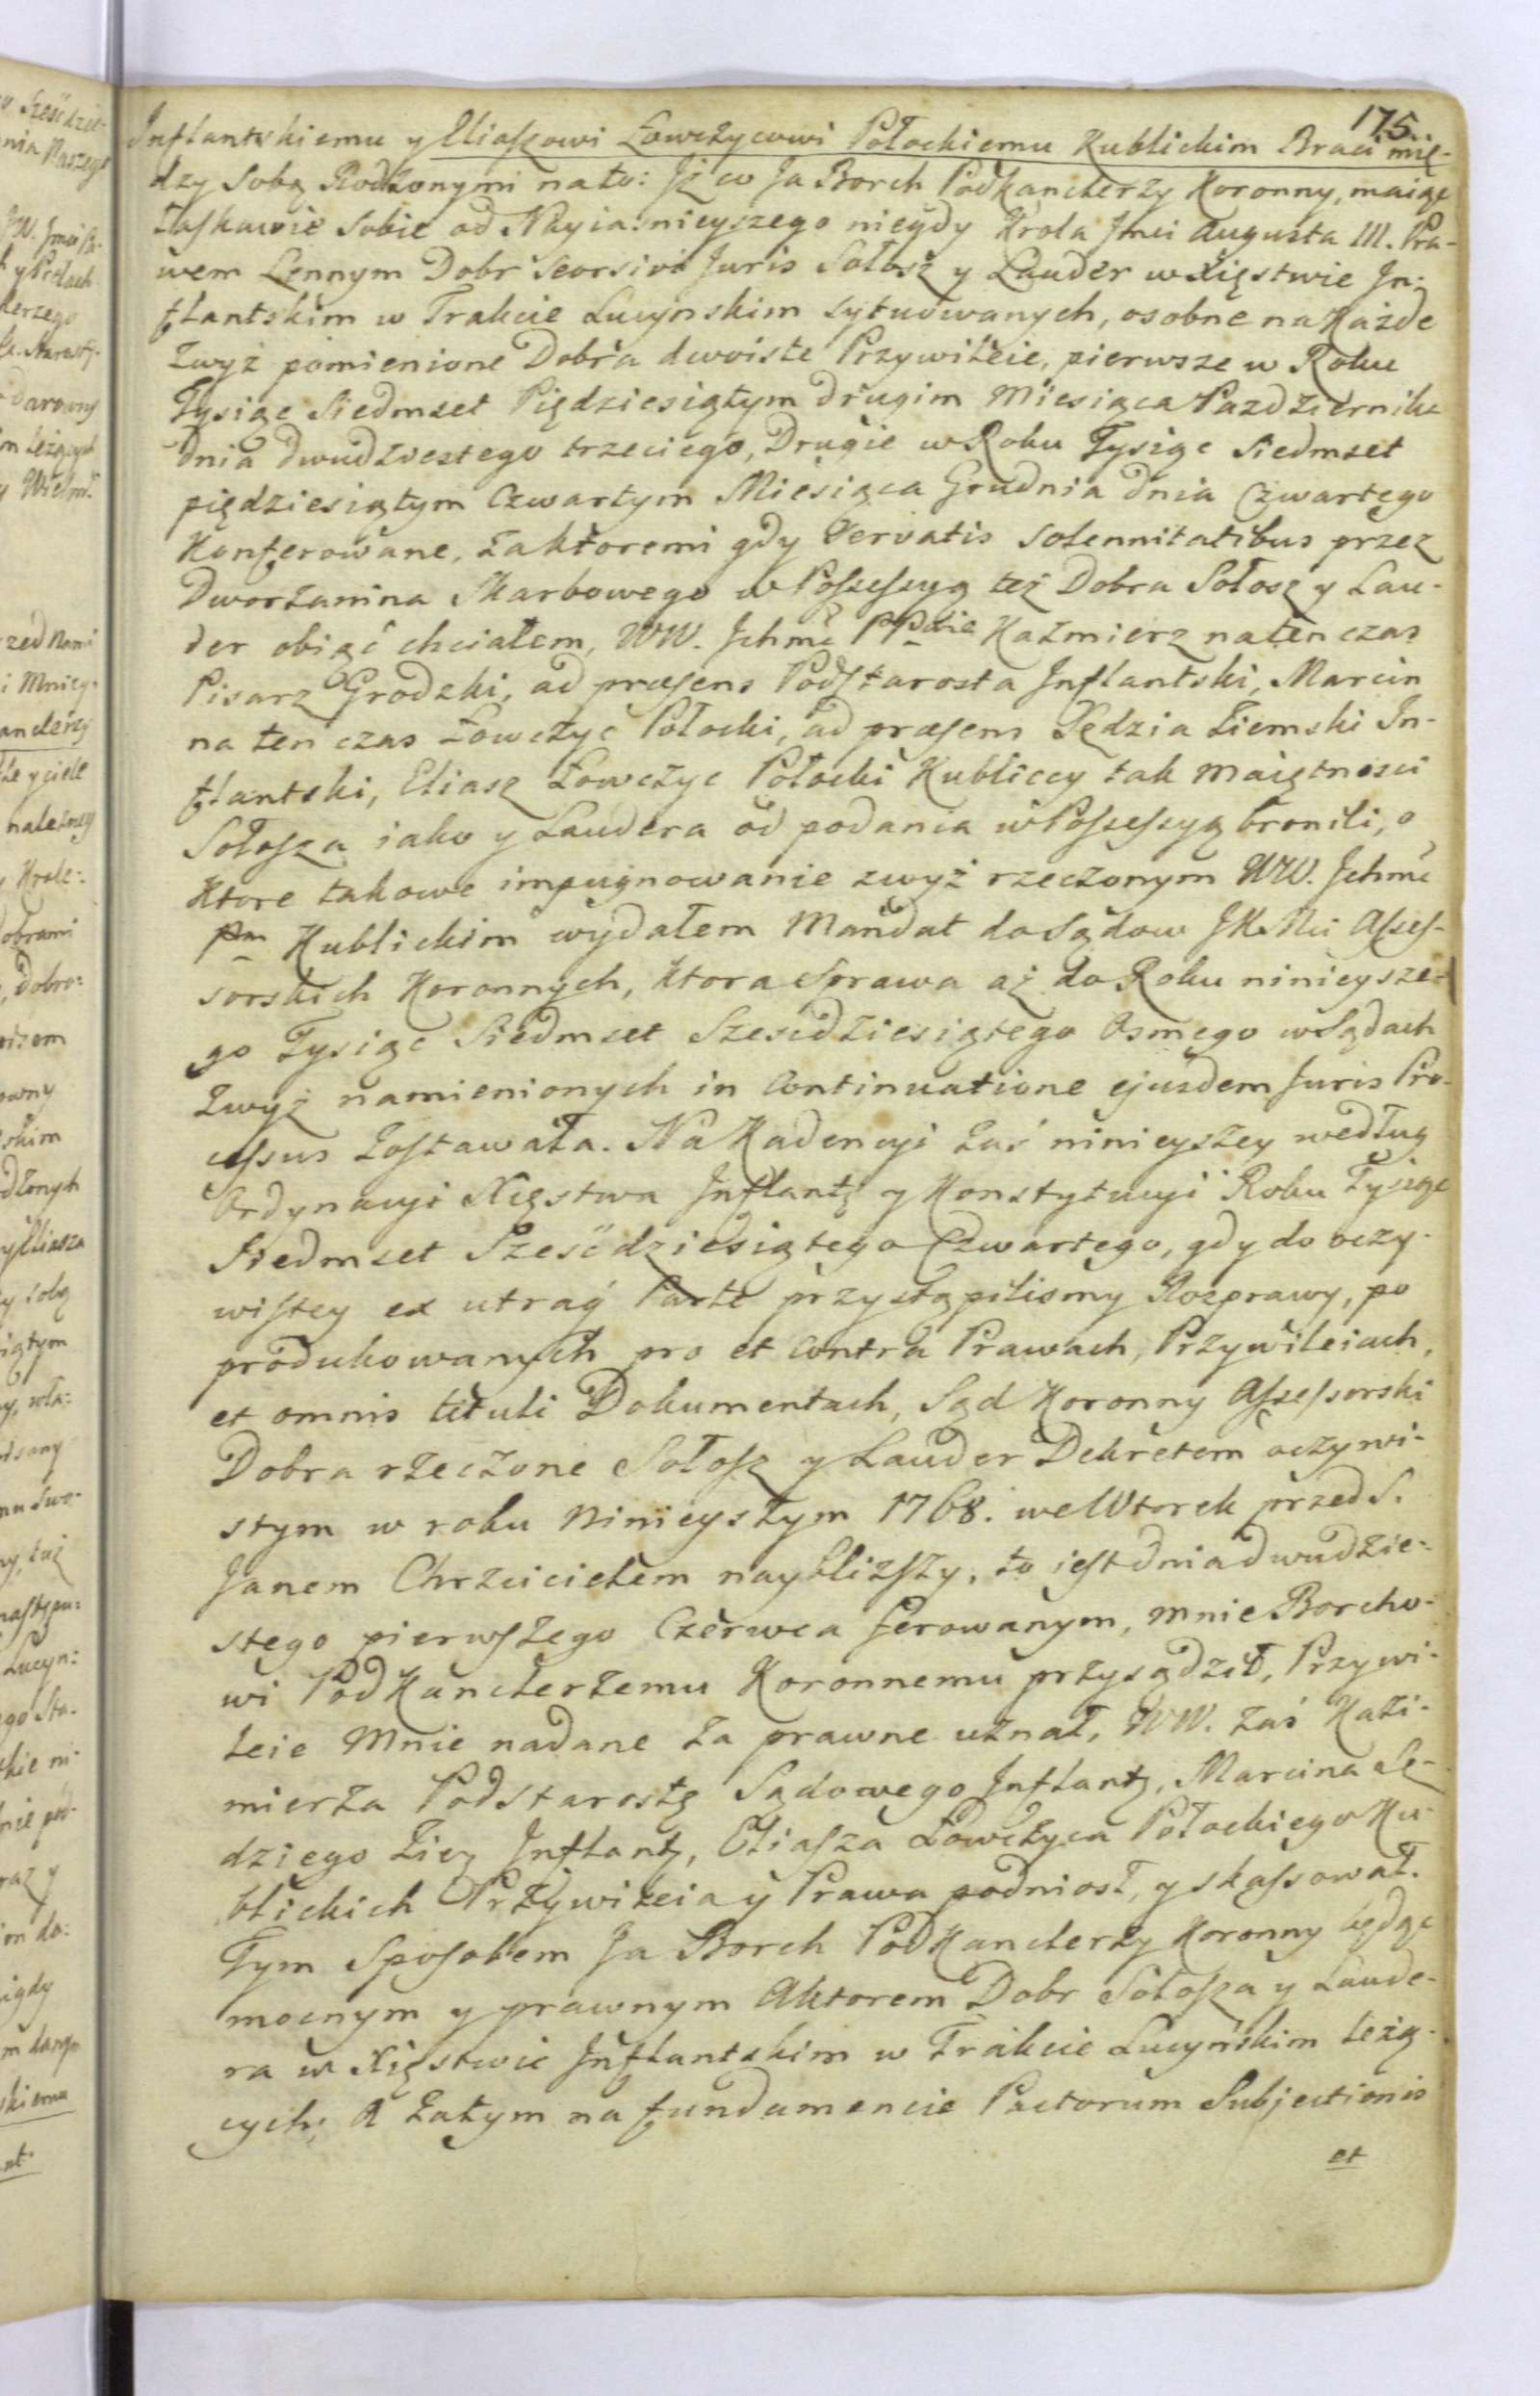 175.
Inflantskiemu y Eliaszowi Łowczycowi Połockiemu Kublickim Braci mię-
dzy sobą Rodzonymi na to: Iż co Ja Borch PodKanclerzy Koronny, maiąc
Łaskawie sobie od Nayiasnieyszego niegdy Krola Jmci Augusta III. Pra-
wem Lennym Dobr seorsivi Juris Sołosz y Lauder w Xięstwie In-
flantskim w Trakcie Lucynskim sytuowanych, osobne na Każde
zwyż pomienione Dobra dwoiste Przywileie, pierwsze w Roku
Tysiąc Siedmset Piędziesiątym drugim Miesiąca Pazdziernika
dnia dwudziestego trzeciego, Drugie w Roku Tysiąc Siedmset
pięдziesiątym Czwartym Miesiąca Grudnia dnia Czwartego
Konferowane, Zaktoremi gdy Servatis Solennitatibus przez
Dworzanina Skarbowego w Possessyą też Dobra Sołosz y Lau-
der obiąć chciałem, WW. Ichmć PPwie Kazmierz naten czas
Pisarz Grodzki, ad præsens Podstarosta Inflantski, Marcin
na ten czas Łowczyc Połocki, ad præsens Sędzia Ziemski In-
flantski, Eliasz Łowczyc Połocki Kubliccy tak maiętnosci
Sołosza iako y Laudera od podania w Possessyą bronili, o
Ktore takowe impugnowanie zwyż rzeczonym WW. Ichmć
Pm Kublickim wydałem Mandat do Sądow JK Mci Asses-
sorskich Koronnych, Ktora Sprawa aż do Roku ninieysze-
go Tysiąc Siedmset Szescdziesiątego Osmego w Sądach
zwyż namienionych in Continuatione ejusdem Juris Pro-
cessus Zostawała. Na Kadencyi zaś ninieyszey według
Ordynacyi Xięstwa Inflantg y Konstytucyi Roku Tysiąc
Siedmset Sześćdziesiątego Czwartego, gdy do oczy-
wistey ex utraq̃ Parte przystąpilismy Rozprawy, po
produkowanych pro et Contra Prawach, Przywileiach,
et omnis tituli Dokumentach, Sąd Koronny Assessorski
Dobra rzeczone Sołosz y Lauder Dekretem oczywi-
stym w roku Ninieyszym 1768. we Wtorek przed S.
Janem Chrzcicielem nayblizszy, to iest dnia dwudzie-
stego pierwszego Czerwca ferowanym, mnie Borcho-
wi PodKanclerzemu Koronnemu przysądził, Przywi-
leie Mnie nadane za prawne uznał, WW. zaś Kazi-
mierza Podstarostę Sądowego Inflantg, Marcina Sę-
dziego Ziem Inflantg, Eliasza Łowczyca Połockiego Ku-
blickich Przywileia y Prawa podniosł, y skassował.
Tym Sposobem Ja Borch PodKanclerzy Koronny będąc
mocnym y prawnym Aktorem Dobr Sołosza y Laude-
ra w Xięstwie Inflantskim w Trakcie Lucyńskim leżą-
cych; A zatym na fundamencie Pactorum Subjectionis
et